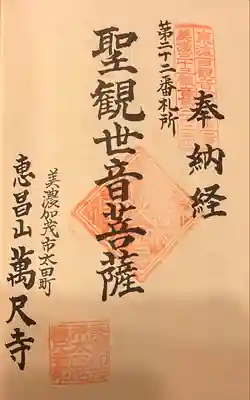 奉納経
第二十二番札所
聖観世音菩薩
美濃加茂市太田町
恵昌山 萬尺寺